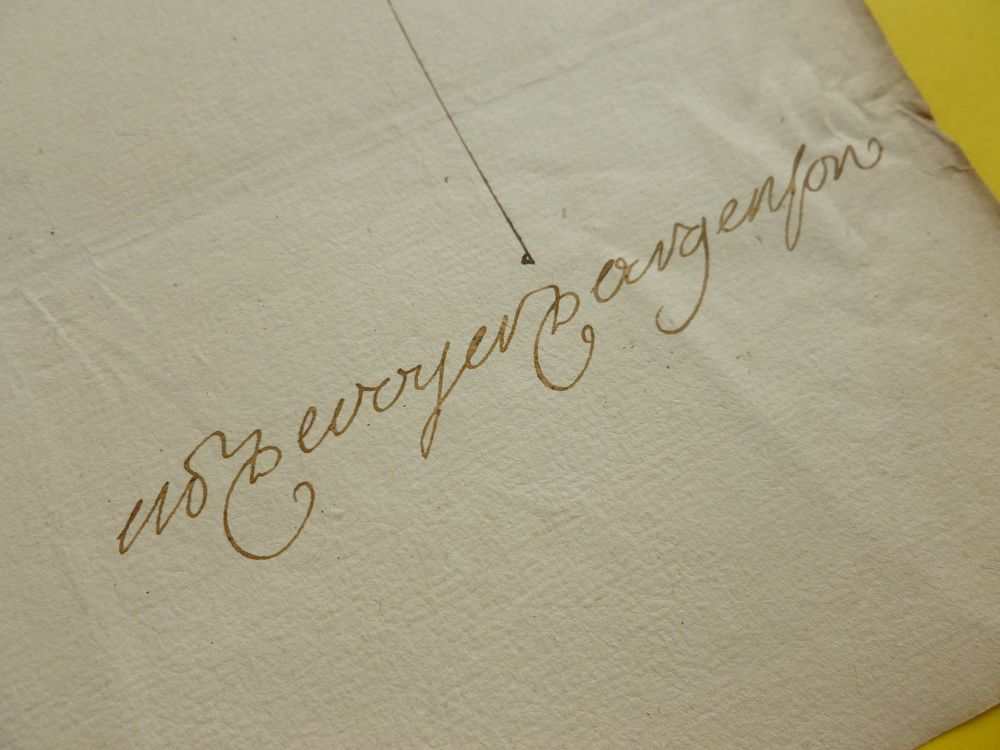 devoyer dargenson